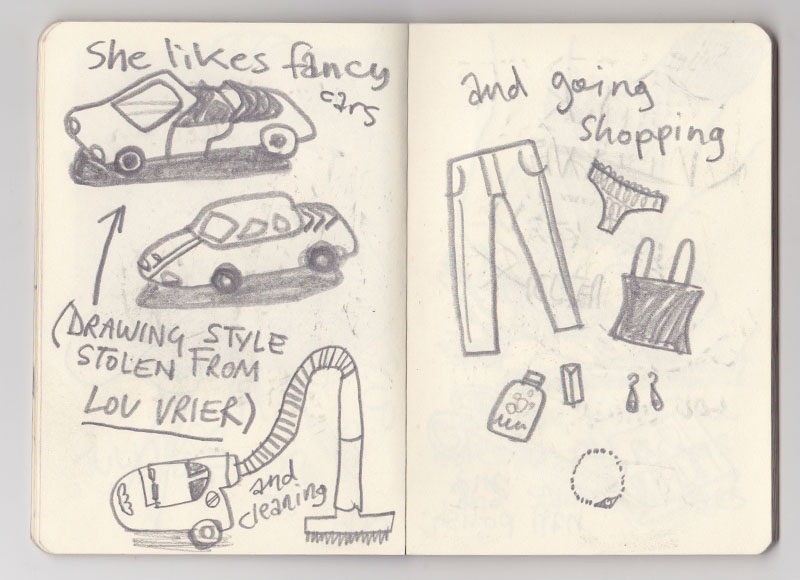 She likes fancy
cars
(DRAWING STYLE
STOLEN FROM
LOU VRIER)
and
cleaning
and going
shopping